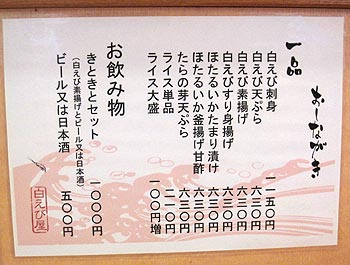 おしながき
一品
白えび刺身 一一五〇円
白えび天ぷら 六三〇円
白えび素揚げ 六三〇円
白えびすり身揚げ 六三〇円
ほたるいかたまり漬け 六三〇円
ほたるいか釜揚げ甘酢 六三〇円
たらの芽天ぷら 六三〇円
ライス単品 二一〇円
ライス大盛 一〇〇円増
お飲み物
きときとセット 一〇〇〇円
(白えび素揚げとビール又は日本酒)
ビール又は日本酒 五〇〇円
白えび屋